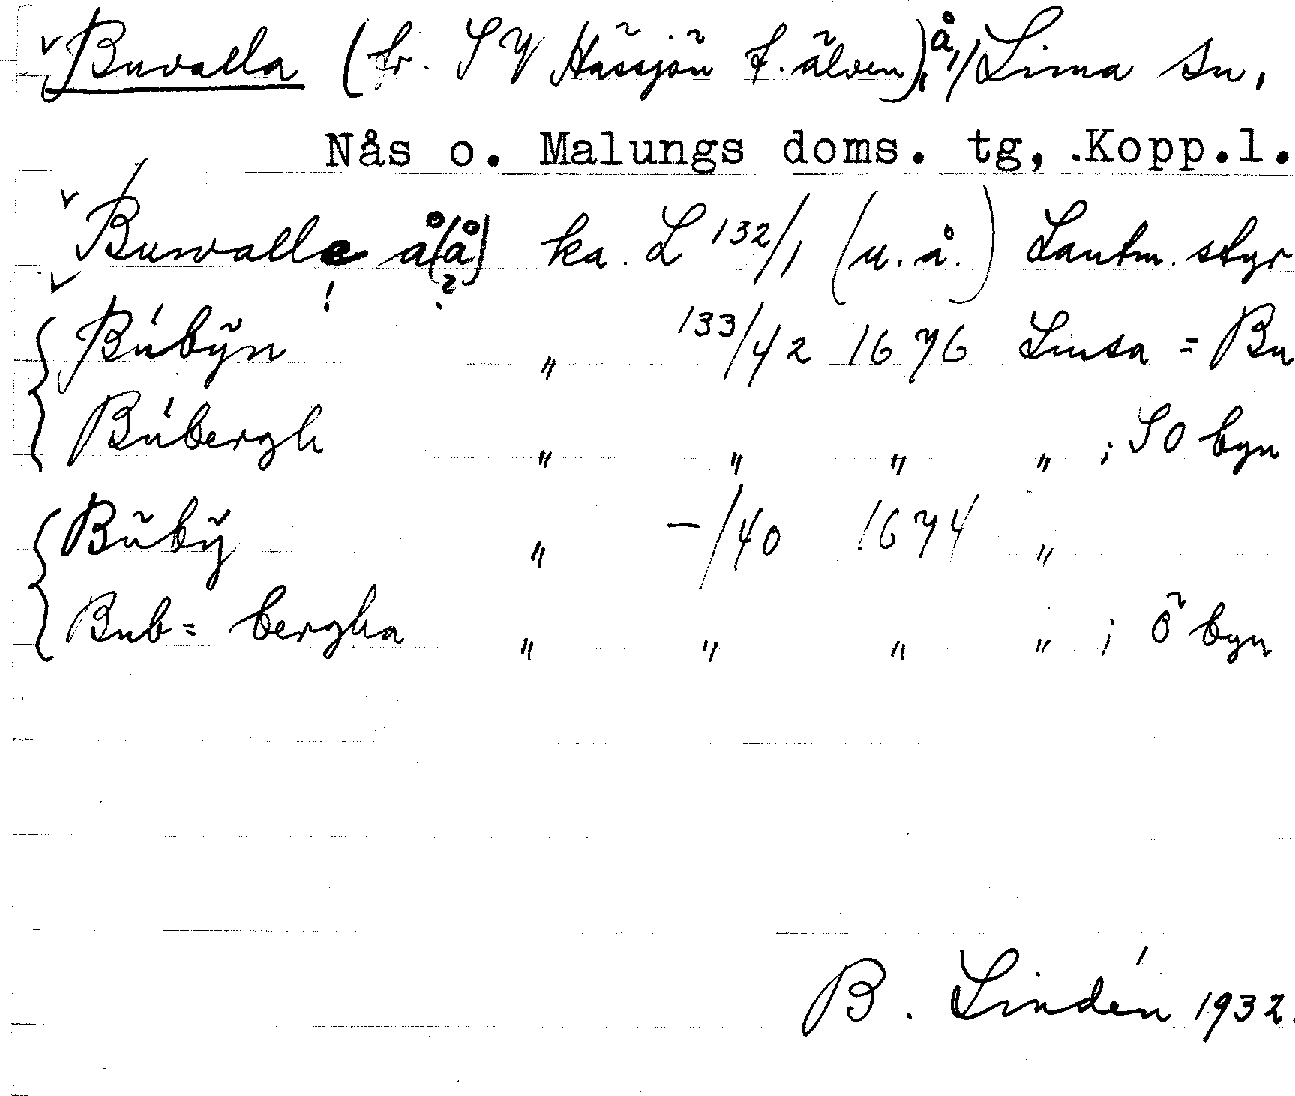 Buvalla (fr. SV Hässjön t. älven), å, Lima sn,
Nås o. Malungs doms. tg, Kopp.l.
Buwalle å(å) ka. L 132/1 (u.å.) Lantm. styr
! ?
{ Búbÿn " 133/42 1676 Limsa = Bu
Búbergh " " " " ; SO byn
{ Bŭbÿ " -/40 1674 "
Bub= bergha " " " " ; Ö byn
B. Lindén 1932.